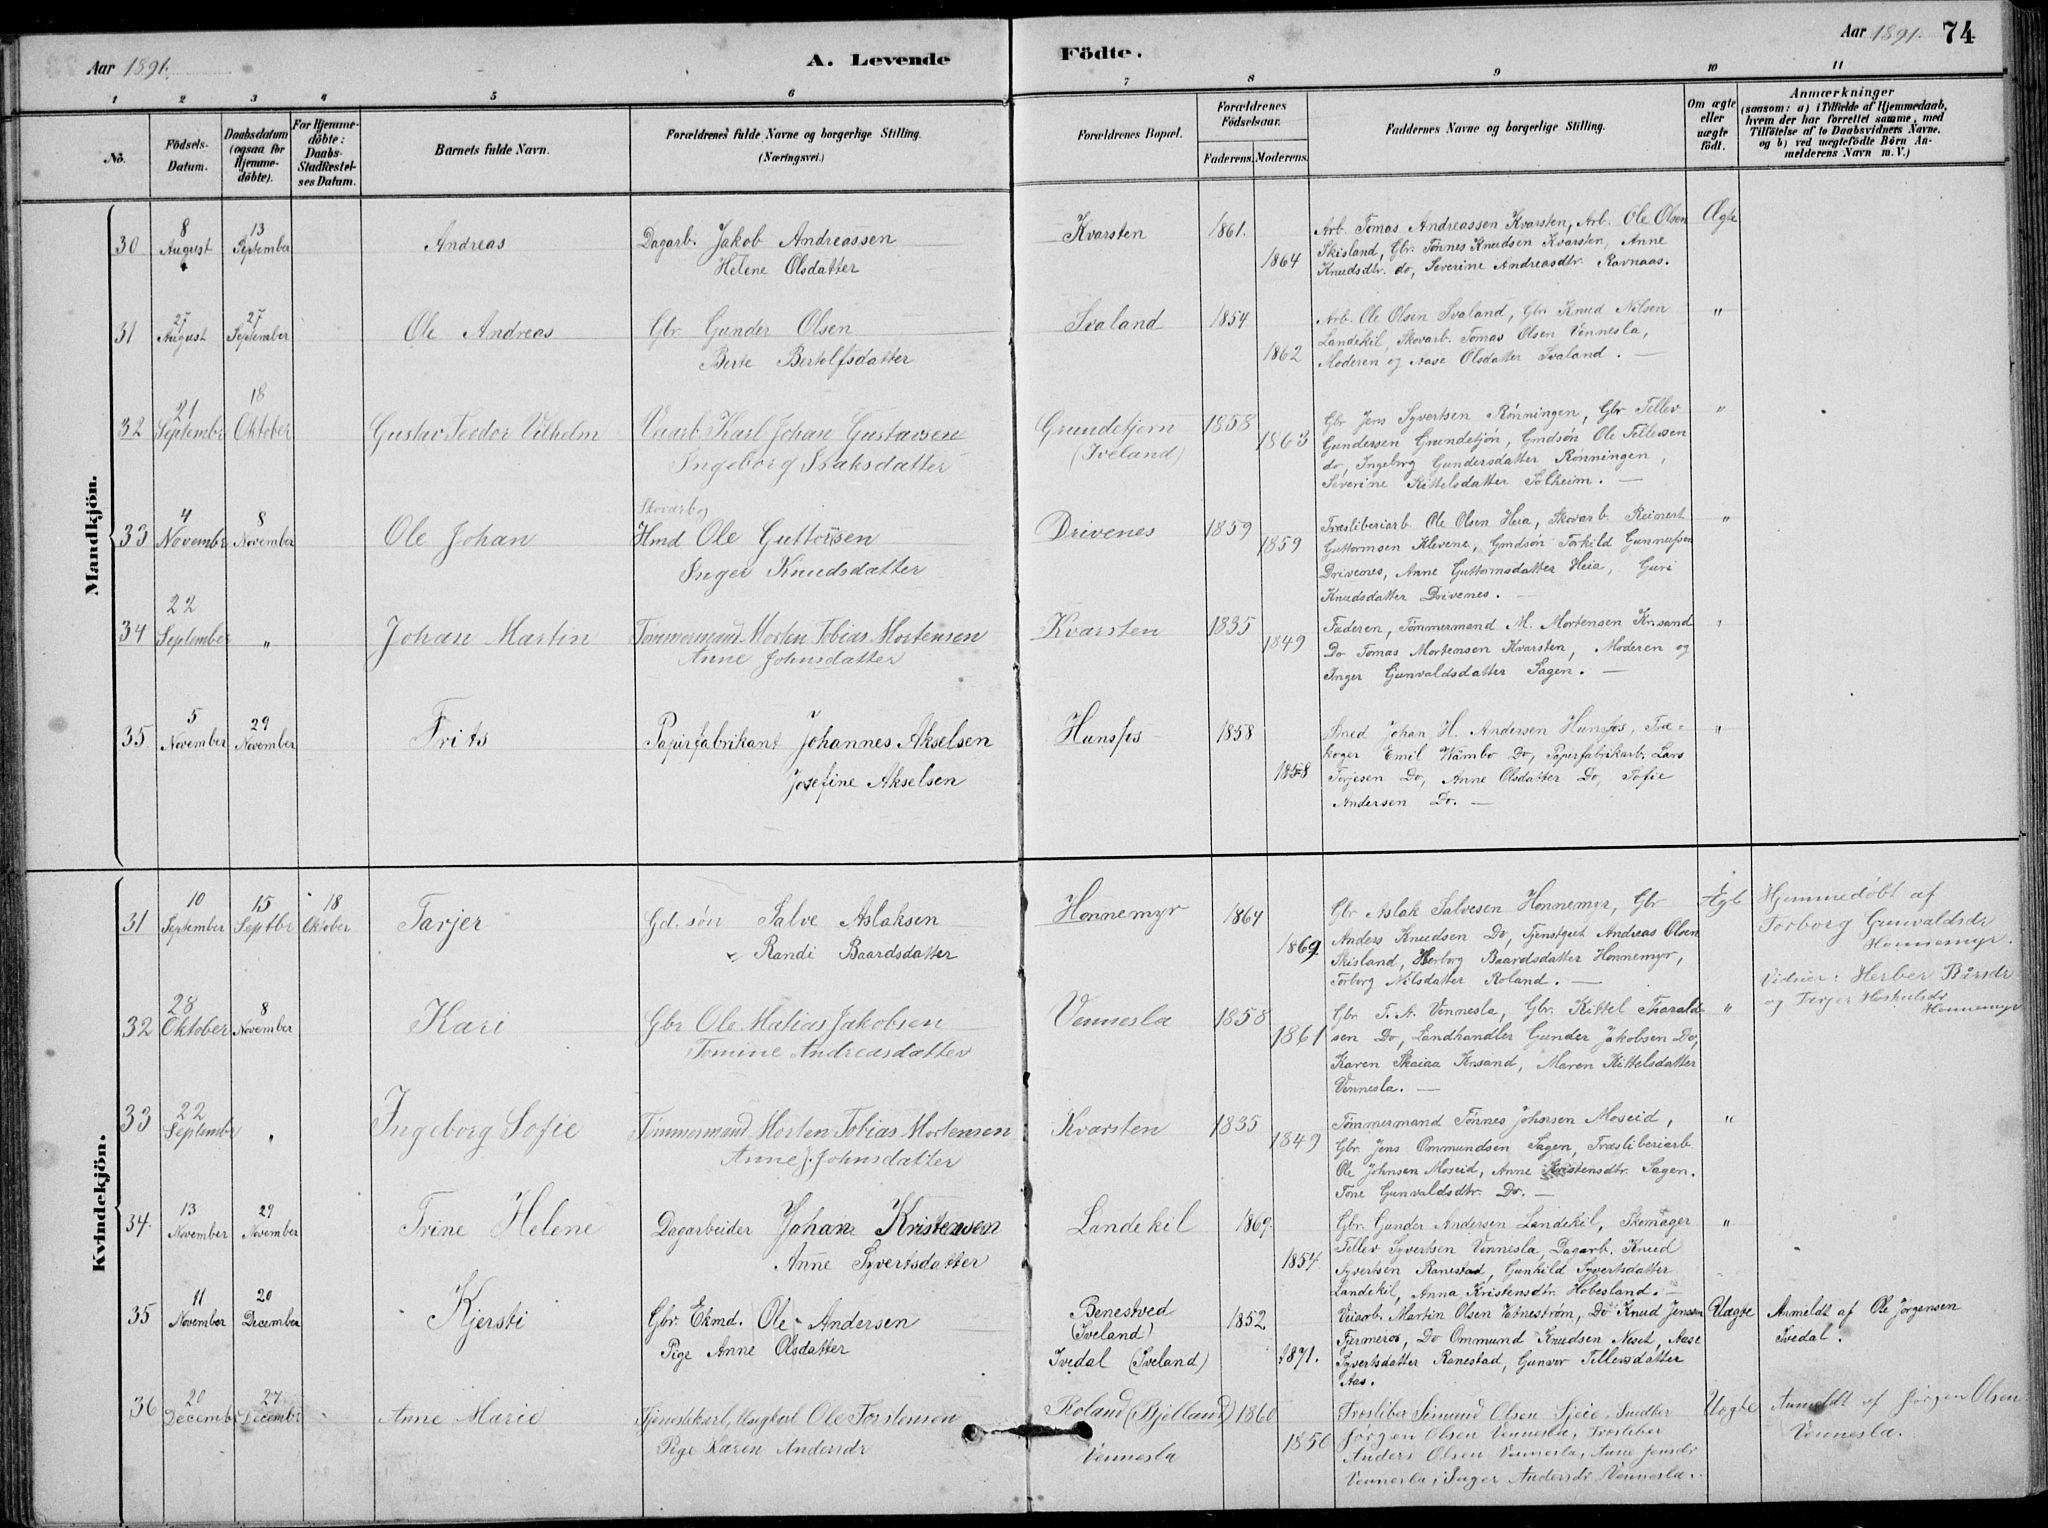 Aar 1891.
A. Levende
Födte.
Aar 1891.
74
1 2 3 4 5 6 7 8 9 10 11
No.
Födsels-Datum.
Daabsdatum (ogsaa for Hjemme-döbte).
For Hjemme-döbte: Daabs-Stadfæstel-ses Datum.
Barnets fulde Navn.
Forældrenes fulde Navne og borgerlige Stilling.
(Næringsvei.)
Forældrenes Bopæl.
Forældrenes Födselsaar.
Faderens. Moderens.
Faddernes Navne og borgerlige Stilling.
Om ægte eller uægte födt.
Anmærkninger
(saasom: a) i Tilfælde af Hjemmedaab, hvem der har forrettet samme, med Tilföielse af to Daabsvidners Navne. og b) ved uægtefödte Börn Anmelderens Navn m. V.)
Mandkjön.
30 8 August 13 September Andreas
Dagarb. Jakob Andreassen
Helene Olsdatter
Kvarsten 1861. 1864
Arb. Tomas Andreassen Kvarsten, Arb. Ole Olsen
Skisland, Gbr. Tönnes Knudsen Kvarsten, Anne
Knudsdtr. do, Severine Andreasdtr. Ravnaas.
Ægte
31 27 September Ole Andreas
August
Gbr. Gunder Olsen
Berte Bertolfsdatter
Svaland 1854 1862
Arb. Ole Olsen Svaland, Gbr. Knud Nilsen
Landekil, Skovarb. Tomas Olsen Vennesla,
Moderen og Aase Olsdatter Svaland. —
"
32 21 September 18 Oktober Gustav Teodor Vilhelm
Karl Johan Gustavsen
Ingeborg Isaksdatter
Grundetjern
(Iveland)
1858 1863
Gbr Jens Syvertsen Rønningen, Gbr Tellev
Gundersen Grundetjön, Gmdsön Ole Tellessen
do, Ingeborg Gundersdatter Rønningen,
Severine Kittelsdatter Solheim. —
"
33 4 November 8 November Ole Johan
Skovarb og
Hmd Ole Guttormsen
Inger Knudsdatter
Drivenes 1859 1859
Træsliberiarb. Ole Olsen Heia, Skovarb Reinert
Guttormsen Klevene, Gmdsön Torkild Gunnufsen
Drivenes, Anne Guttormsdatter Heia, Guri
Knudsdatter Drivenes. —
"
34 22 September " Johan Martin
Tømmermand Morten Tobias Mortensen
Anne Johnsdatter
Kvarsten 1835 1849
Faderen, Tömmermand M. Mortensen Krsand
Do Tomas Mortensen Kvarsten, Moderen og
Inger Gunvaldsdatter Sagen. —
"
35 5 November 29 November Frits
Papirfabrikant Johannes Akselsen
Josefine Akselsen
Hunsfos 1858 1858
Smed Johan H. Andersen Hunsfos,
koger Emil Wambo Do, Papirfabrikarb. Lars
Terjesen Do, Anne Olsdatter Do, Sofie
Andersen Do. —
"
Kvindekjön.
31 10 September 15 Septbr 18 Oktober Tarjer
Gd. sön Salve Aslaksen
Randi Baardsdatter
Honnemyr 1864 1869
Gbr Aslak Salvesen Honnemyr, Gbr
Anders Knudsen Do, Tjenstgut Andreas Olsen
Skisland, Herborg Baardsdatter Honnemyr,
Torborg Nilsdatter Roland. —
Ægte
Hjemmedøbt af
Torborg Gunvaldsdr
Honnemyr.
Vidner: Herber Bårsdr
og Tarjer
Honnemyr
32 28 Oktober 8 November Kari
Gbr Ole Matias Jakobsen
Tomine Andreasdatter
Vennesla 1858 1861
Gbr. T. A. Vennesla, Gbr. Kittel Tharald-
sen Do, Landhandler Gunder Jakobsen Do,
Karen Skaiaa Krsand, Maren Kittelsdatter
Vennesla. —
"
33 22 September " Ingeborg Sofie
Tømmermand Morten Tobias Mortensen
Anne J. Johnsdatter
Kvarsten 1835 1849
Tömmermand Tönnes Johnsen Moseid,
Gbr. Jens Ommundsen Sagen, Træsliberiarb
Ole Johnsen Moseid, Anne Kristensdtr. Sagen.
Tone Gunvaldsdtr. Do. —
"
34. 13 November 29 November Trine Helene
Dagarbeider Johan Kristensen
Anne Syvertsdatter
Landekil 1869. 1854.
Gbr. Gunder Andersen Landekil, Skomager
Tellev Syvertsen Vennesla, Dagarb. Knud
Syvertsen Ranestad, Gunhild Syvertsdatter
Landekil, Anna Kristensdtr. Hobesland. —
"
35 11 November 20 December Kjersti
Gbr. Ekmd. Ole Andersen
Pige Anne Olsdatter
Benestved
(Iveland)
Ivedal (Iveland)
1852 1871.
Veiarb. Martin Olsen Vatneström, Do Knud Jensen
Do Ommund Knudsen Neset, Aase
Syvertsdatter Ranestad, Gunvor Tellevsdatter
Aas.
Uægte
Anmeldt af Ole Jörgensen
Ivedal.
36 20 Decemb 27 Decembr Anne Marie
Tjenestkarl, Ungkarl Ole Torstensen
Pige Karen Andersdr
Roland (Bjelland)
Vennesla
1860 1856
Træsliber Simund Olsen Snedker
Jørgen Olsen Vennesla, Træsliber
Anders Olsen Vennesla, Anne Jensdr
Vennesla, Inger Andersdr Vennesla.
Uægte
Anmeldt af Jørgen Olsen
Vennesla.